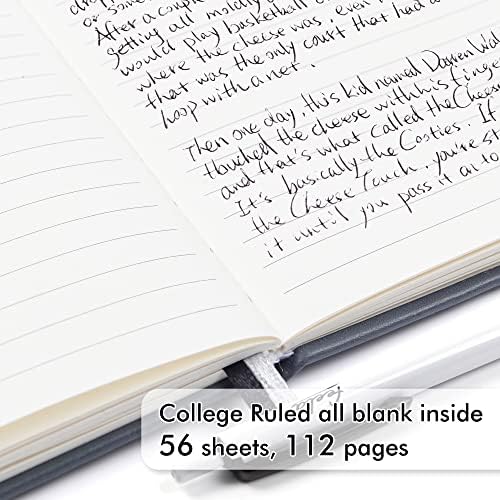 or some
After a couple
getting all moldy
would play basketball
where the cheese was, even
that was the only court that had a
hoop with a net.
Then one day, this kid named Darren Wal
touched the cheese with his finger
and that's what called the Cheese
It's basically the Costies. If
the Cheese Touch, you're st
it until you pass it on to
College Ruled all blank inside
56 sheets, 112 pages